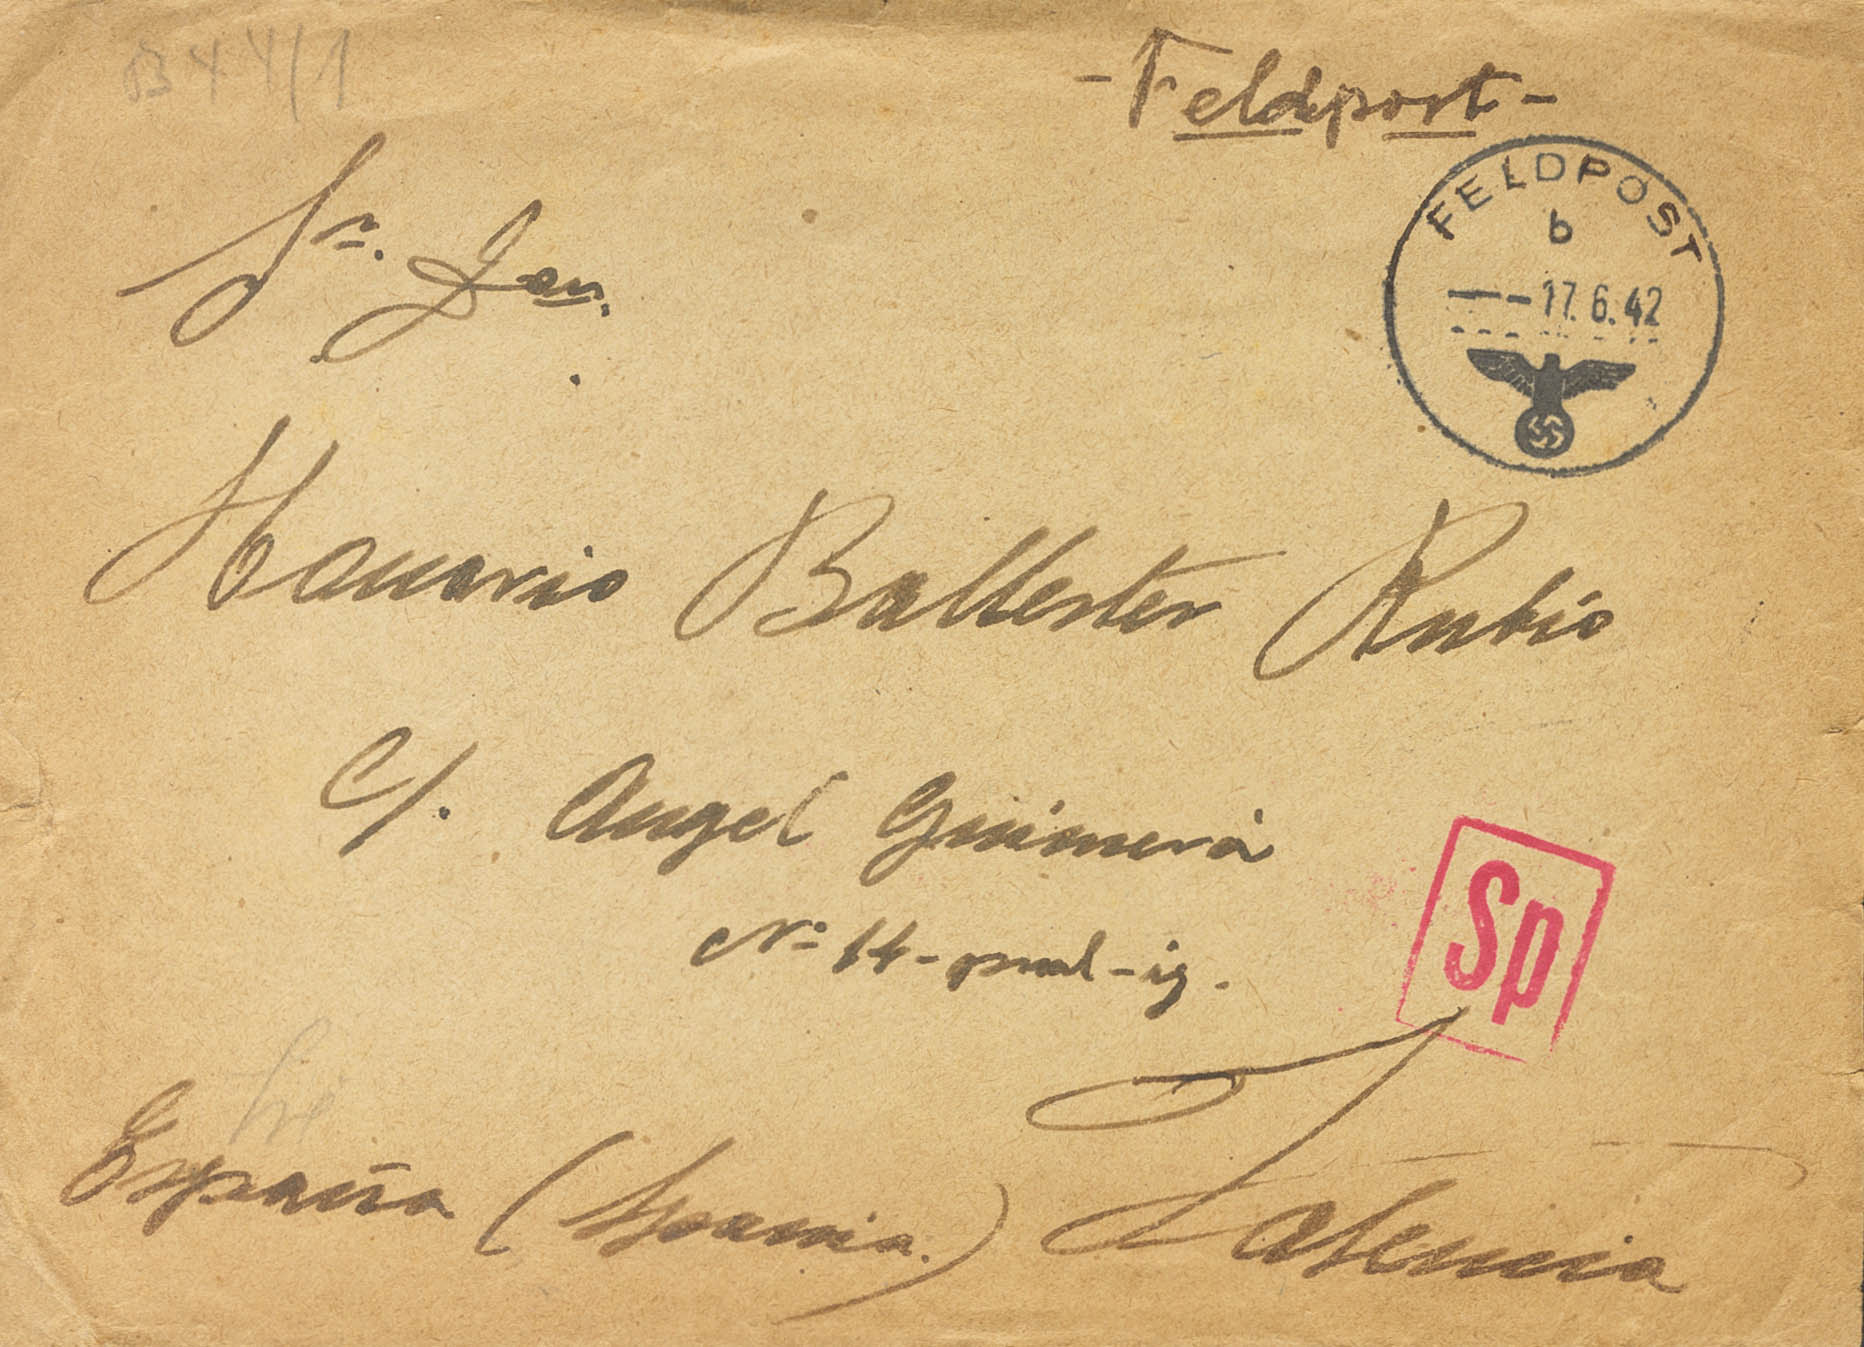 B 44/1
- Feldpost -
FELDPOST
b
17.6.42
Sr. Don.
Ballester Rubio
C/. Angel Guimerá
Nº 14 - pral - iz.
Sp
España (Spania.) Valencia